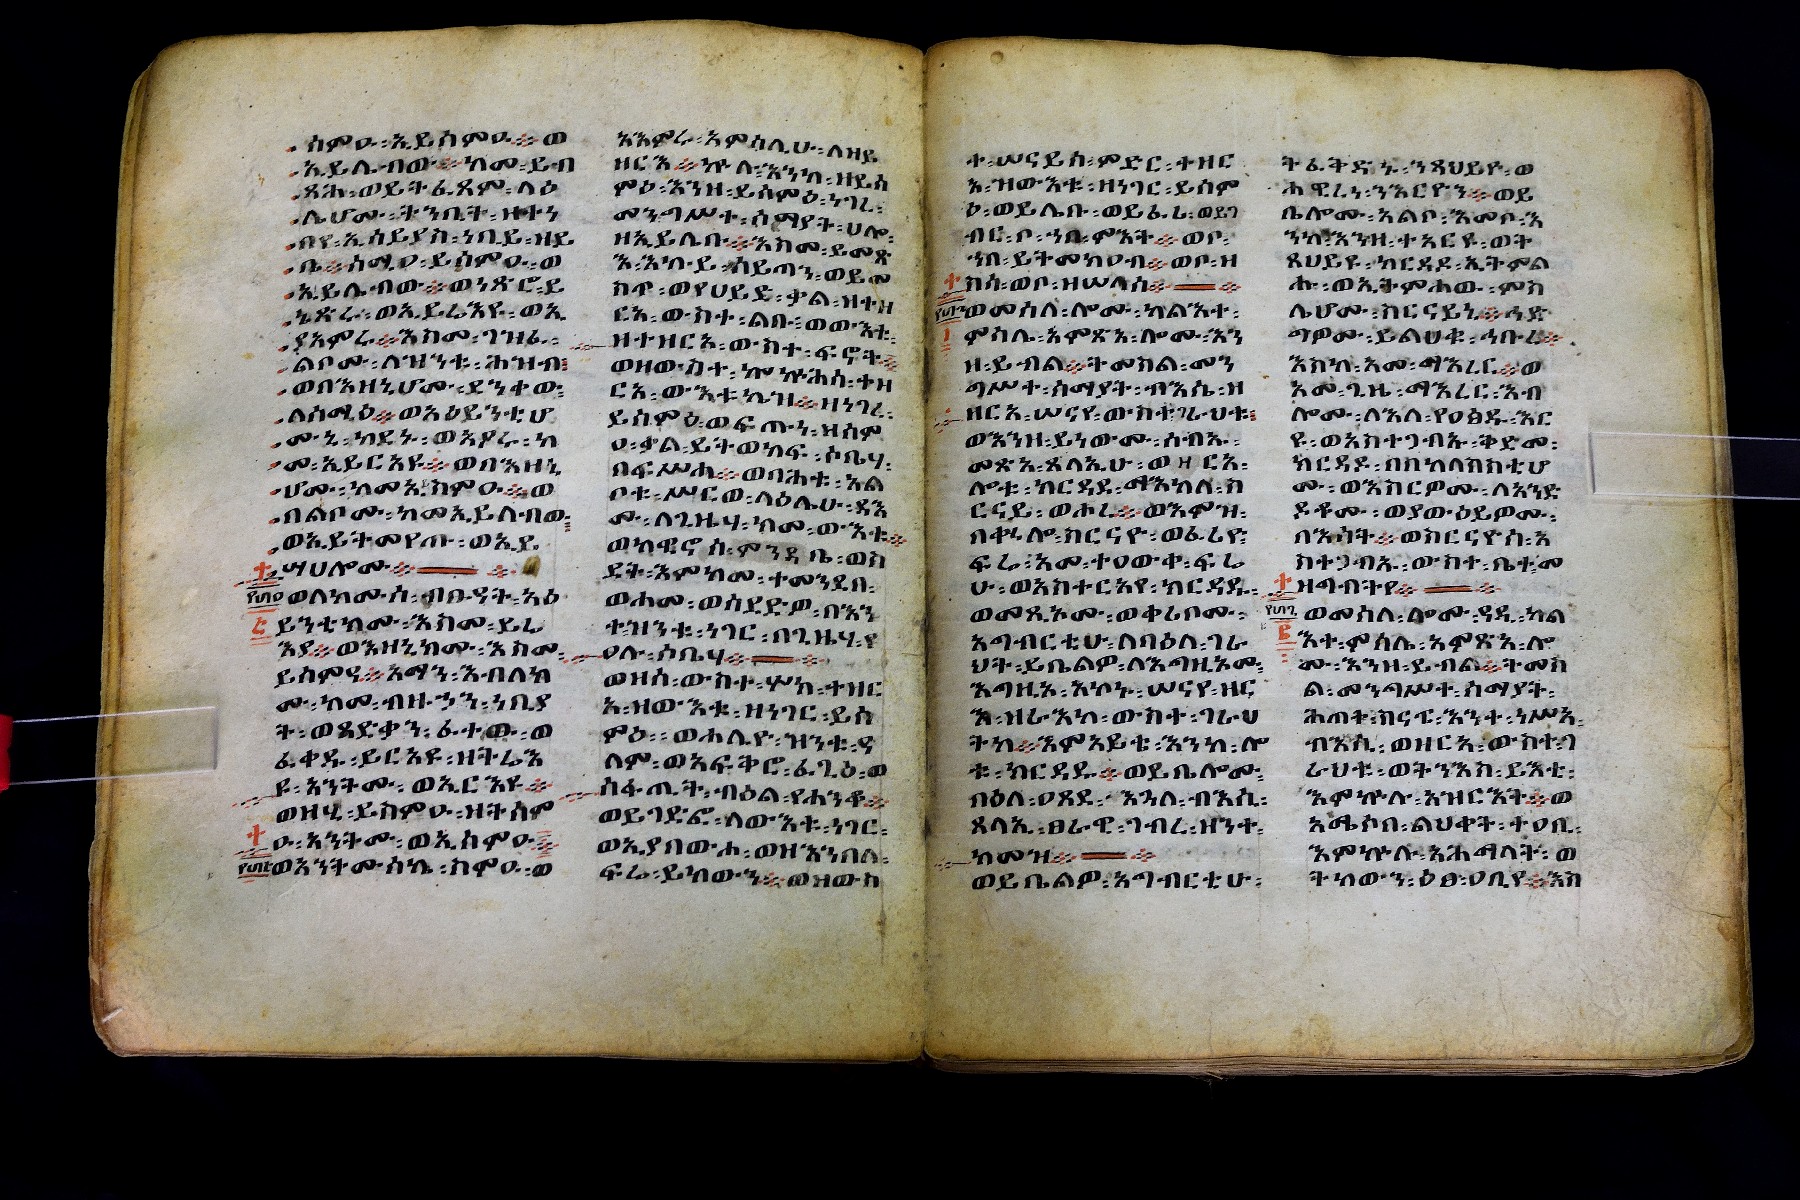 ሰምዑ፡ኢይሰምዑ፨ወ
ኢይሌብው፨ከመ፡ይብ
ጻሕ፡ወይትፌጸም፡ላዕ
ሌሆሙ፡ትንቢት፡ዘተነ
በየ፡ኢሳይያስ፡ነቢይ፡ዘይ
ቤ፨ሰሚዐ፡ይሰምዑ፡ወ
ኢይሌብው፨ወነጽሮ፡ይ
ኔጽሩ፡ወኢይሬእዩ፡ወኢ
ያአምሩ፨እስመ፡ገዝፈ፡
ልቦሙ፡ለዝንቱ፡ሕዝብ፡
ወበእዘኒሆሙ፡ደንቀወ፡
ለሰሚዕ፨ወአዕይንቲሆ
ሙኒ፡ከደኑ፡ወአፆሩ፡ከ
መ፡ኢይርአዩ፨ወበእዘኒ
ሆሙ፡ከመ፡ኢይስምዑ፨ወ
በልቦሙ፡ከመ፡ኢይለብው፡
ወኢይትመየጡ፡ወኢይ
ሣሀሎሙ፨
ወለክሙሰ፡ብፁዓት፡አዕ
ይንቲክሙ፡እስመ፡ይሬ
እያ፨ወእዘኒክሙ፡እስመ፡
ይሰምዓ፨አማን፡እብለክ
ሙ፡ከመ፡ብዙኃን፡ነቢያ
ት፡ወጻድቃን፡ፈተዉ፡ወ
ፈቀዱ፡ይርአዩ፡ዘትሬእ
ዩ፡አንትሙ፡ወኢርእዩ፨
ወዘሂ፡ይስምዑ፡ዘትሰም
ዑ፡አንትሙ፡ወኢሰምዑ፨
ወአንትሙሰኬ፡ስምዑ፡ወ
አእምሩ፡አምሳሊሁ፡ለዘይ
ዘርእ፨ኵሉ፡እንከ፡ዘይሰ
ምዕ፡እንዘ፡ይሰምዕ፡ነገረ፡
መንግሥተ፡ሰማያት፡ሀሎ፡
ዘኢይሌቡ፨እስመ፡ይመጽ
እ፡እኩይ፡ሰይጣን፡ወይመ
ስጥ፡ወየሀይድ፡ቃል፡ዘተዘ
ርአ፡ውስተ፡ልቡ፡ወውእቱ፡
ዘተዘርአ፡ውስተ፡ፍኖት፨
ወዘውስተ፡ኰኵሕሰ፡ተዘ
ርአ፡ውእቱኬ፡ዝ፨ዘነገረ፡
ይሰምዕ፡ወፍጡነ፡ዝሰም
ዐ፡ቃል፡ይትወከፍ፡ሶቤሃ፡
በፍሥሐ፨ወባሕቱ፡አል
ቦቱ፡ሥርወ፡ላዕሌሁ፡ዳእ
ሙ፡ለጊዜሃ፡ከመ፡ውእቱ፨
ወከዊኖ፡ሰ፡ምንዳቤ፡ወስ
ደት፡እምከመ፡ተመንደበ፡
ወሐመ፡ወሰደድዎ፡በእን
ተ፡ዝንቱ፡ነገር፡በጊዜሃ፡የ
ዐሉ፡ሶቤሃ፨
ወዘሰ፡ውስተ፡ሦክ፡ተዘር
አ፡ዝውእቱ፡ዘነገር፡ይሰ
ምዕ፡፡ወሐሊዮ፡ዝንቱ፡ዓ
ለም፡ወአፍቅሮ፡ፈጊዕ፡ወ
ስፋጢት፡ብዕል፡የሐንቆ፨
ወይገድፎ፡ለውእቱ፡ነገር፡
ወኢያበውሖ፡ወዘእንበለ፡
ፍሬ፡ይከውን፨ወዝውስ
ተ፡ሠናይሰ፡ምድር፡ተዘር
አ፡ዝውእቱ፡ዘነገር፡ይሰም
ዕ፡ወይሌቡ፡ወይፈሪ፡ወይገ
ብር፡ቦ፡ኀበ፡ምእት፨ወቦ፡
ኀበ፡ይትመከዐብ፨ወቦ፡ዘ
ስሳ፡ወቦ፡ዘሠላሳ፨
ወመሰለ፡ሎሙ፡ካልእተ፡
ምሳሌ፡አምጽአ፡ሎሙ፡እን
ዘ፡ይብል፨ትመስል፡መን
ግሥተ፡ሰማያት፡ብእሴ፡ዘ
ዘርአ፡ሠናየ፡ውስተ፡ገራህቱ፡
ወእንዘ፡ይነውሙ፡ሰብኡ፡
መጽአ፡ጸላኢሁ፡ወዘርአ፡
ሎቱ፡ክርዳደ፡ማእከለ፡ስ
ርናይ፡ወሖረ፨ወእምዝ፡
በቈሎ፡ስርናዮ፡ወፈሪዮ፡
ፍሬ፡አመ፡ተዐውቀ፡ፍሬ
ሁ፡ወአስተርአየ፡ክርዳዱ፡
ወመጺኦሙ፡ወቀሪቦሙ፡
አግብርቲሁ፡ለባዕለ፡ገራ
ህት፡ይቤልዎ፡ለእግዚኦሙ፡
እግዚእ፡አኮኑ፡ሠናየ፡ዘር
አ፡ዝራእከ፡ውስተ፡ገራህ
ትከ፨እምአይቴ፡እንከ፡ሎ
ቱ፡ክርዳዱ፨ወይቤሎሙ፡
በዕለ፡ዐጸደ፡እጓለ፡ብእሲ፡
ጸላኢ፡ፀራዊ፡ገብረ፡ዘንተ፡
ከመዝ፨
ወይቤልዎ፡አግብርቲሁ፡
ትፈትድኑ፡ንጻህይዮ፡ወ
ሕዊረነ፡ንእርዮን፨ወይ
ቤሎሙ፡አልቦ፡እመቦ፡እ
ንከ፡እንዘ፡ተአርዩ፡ወት
ጼህይዩ፡ክርዳደ፡ኢትምል
ሑ፡ወኢትምሐው፡ምስ
ሌሆሙ፡ስርናይኒ፨ኅድ
ግዎሙ፡ይልህቁ፡ኅቡረ፨
እስከ፡አመ፡ማእረር፨ወ
አመ፡ጊዜ፡ማእረር፡እብ
ሎሙ፡ለእለ፡የዐፅዱ፡እር
ዩ፡ወአስተጋብኡ፡ቅድመ፡
ክርዳደ፡በበከላስስቲሆ
ሙ፡ወእስርዎሙ፡ለእንድ
ዶቶሙ፡ወያውዕይዎሙ፡
በእሳት፨ወስርናዮሰ፡አ
ስተጋብኡ፡ውስተ፡ቤተ፡መ
ዝግብትየ፨
ወመሰለ፡ሎሙ፡ዓዲ፡ካል
እተ፡ምሳሌ፡አምጽአ፡ሎ
ሙ፡እንዘ፡ይብል፨ትመስ
ል፡መንግሥተ፡ሰማያት፡
ሕጠተ፡ስናፔ፡እንተ፡ነሥአ፡
ብእሲ፡ወዘርአ፡ውስተ፡ገ
ራህቱ፡ወትንእስ፡ይእቲ፡
እምኵሉ፡አዝርእት፨ወ
አሜሰበ፡ልህቀት፡ተዐቢ፡
እምኵሉ፡አሕማላት፡ወ
ትከውን፡ዕፀ፡ዐቢየ፨እስ